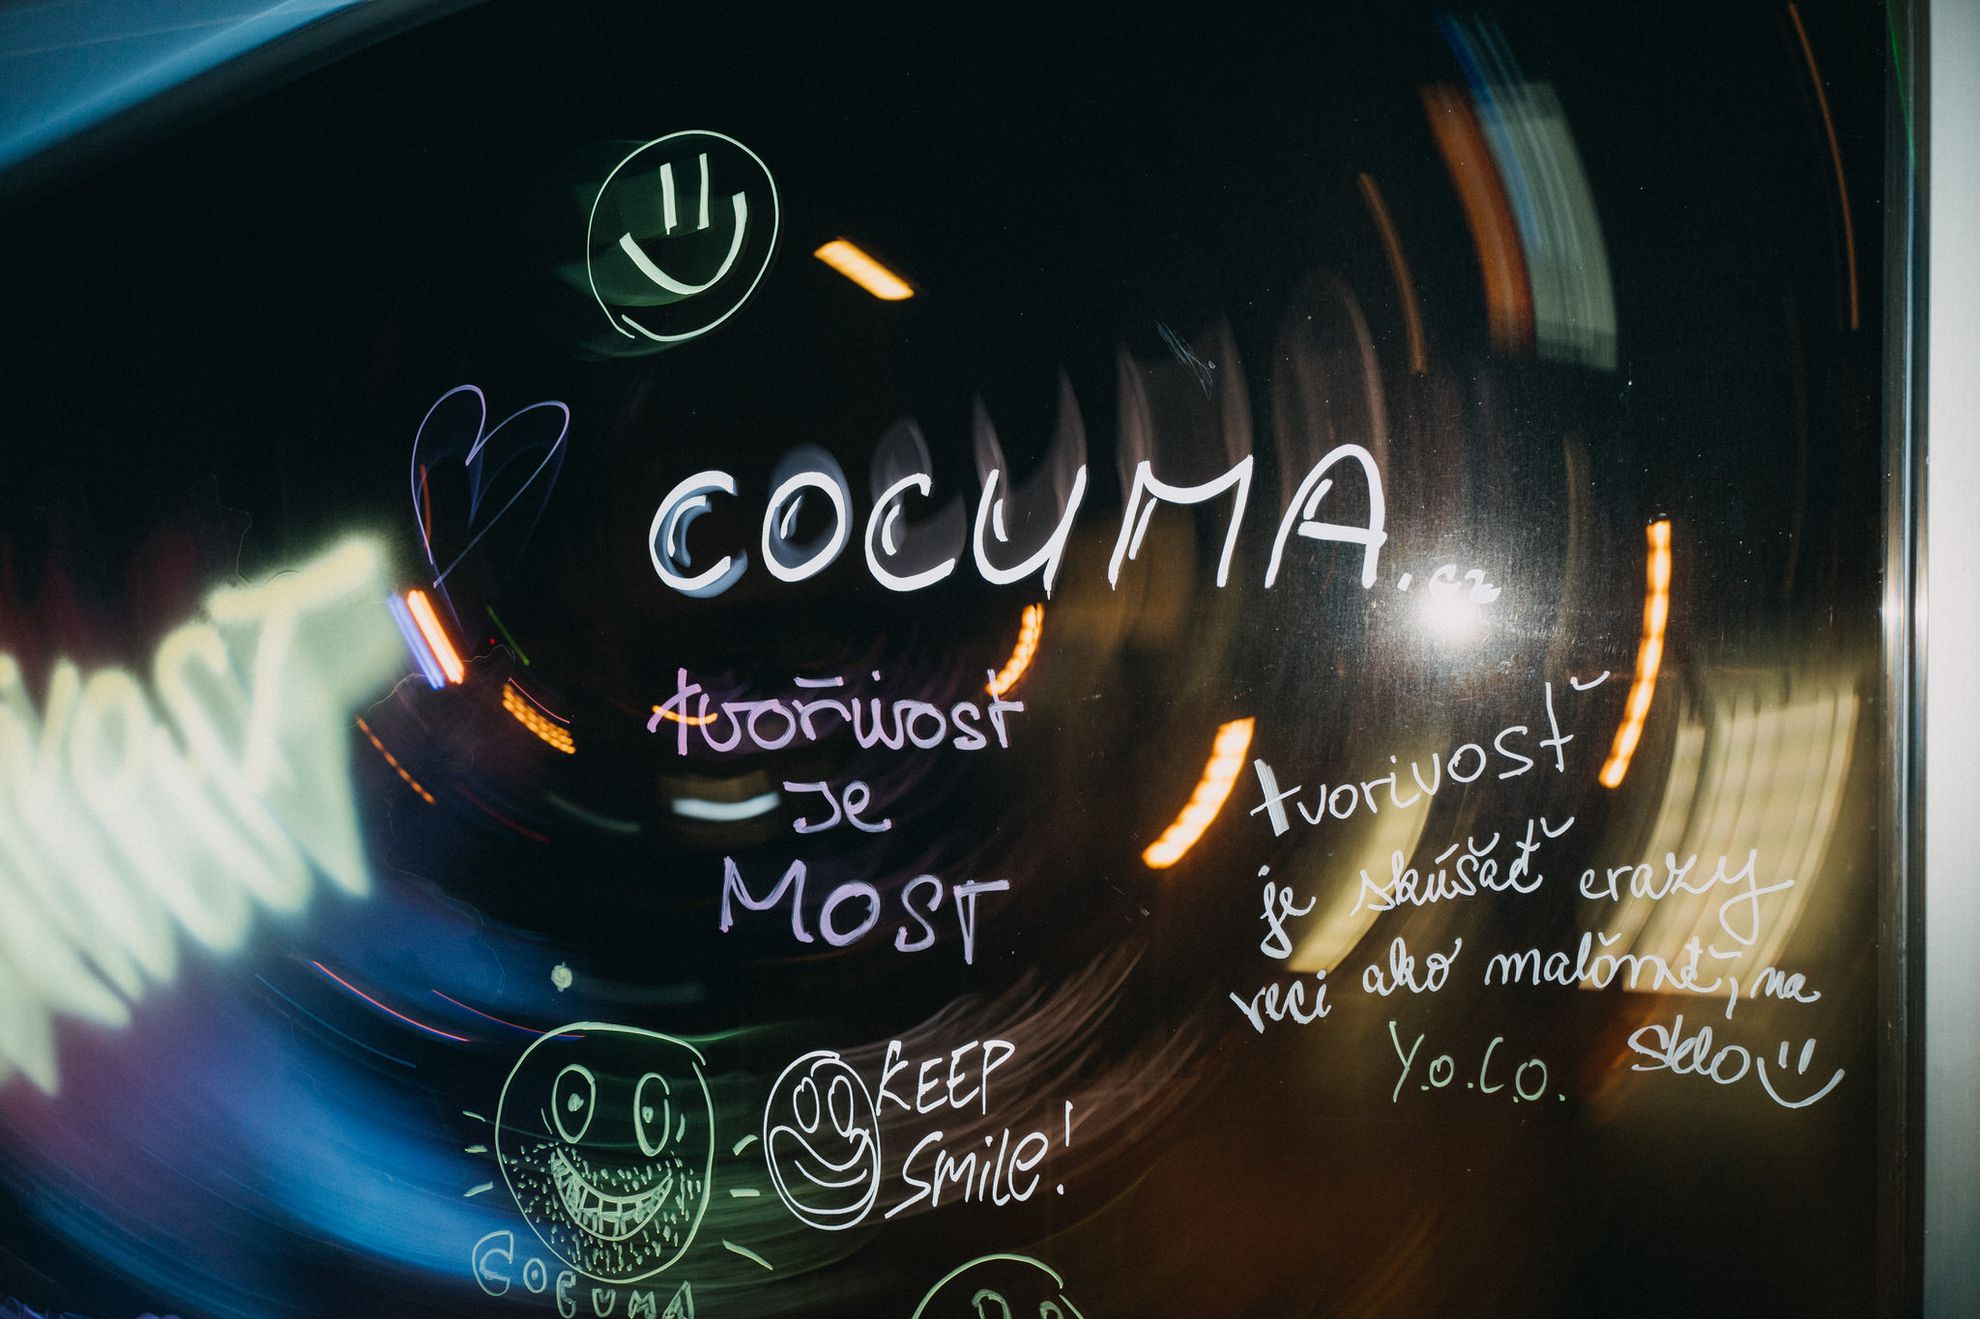 COCUMA.cz
tvořivost
JE
MOST
tvorivosť
je skúšať crazy
veci ako maľovať, na
sklo
Y.O.C.O.
KEEP
SMILE!
COCUMA